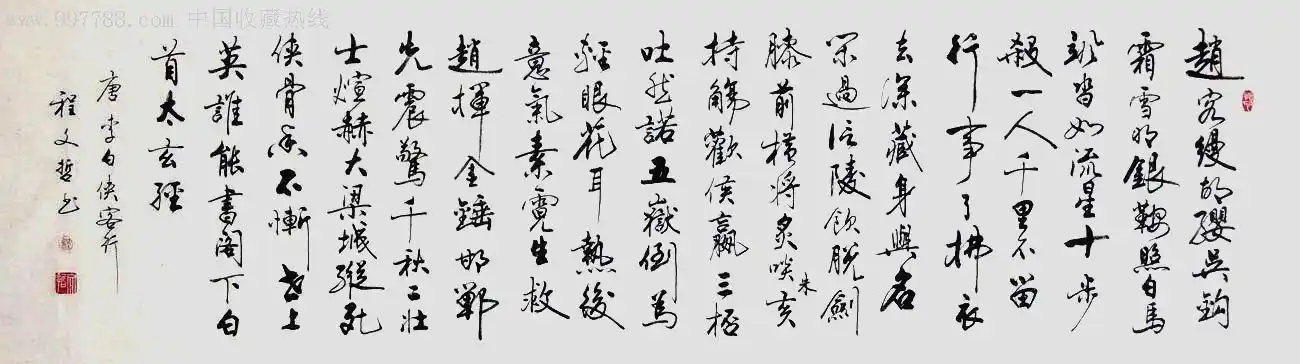 www.997788.com 中国收藏热线
趙客縵胡纓吳鈎
霜雪明銀鞍照白馬
颯沓如流星十步
殺一人千里不留
行事了拂衣
去深藏身與名
閑過信陵飲脫劍
膝前橫將炙啖朱亥
持觴勸侯嬴三杯
吐然諾五嶽倒為
輕眼花耳熱後
意氣素霓生救
趙揮金錘邯鄲
先震驚千秋二壯
士煊赫大梁城縱死
俠骨香不慚世上
英誰能書閣下白
首太玄經
唐李白俠客行
程文哲书